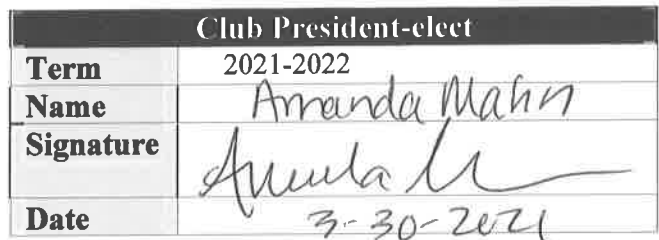 Club President-elect
Term 2021-2022
Name Amanda Mahn
Signature Amanda
Date 3-30-2021